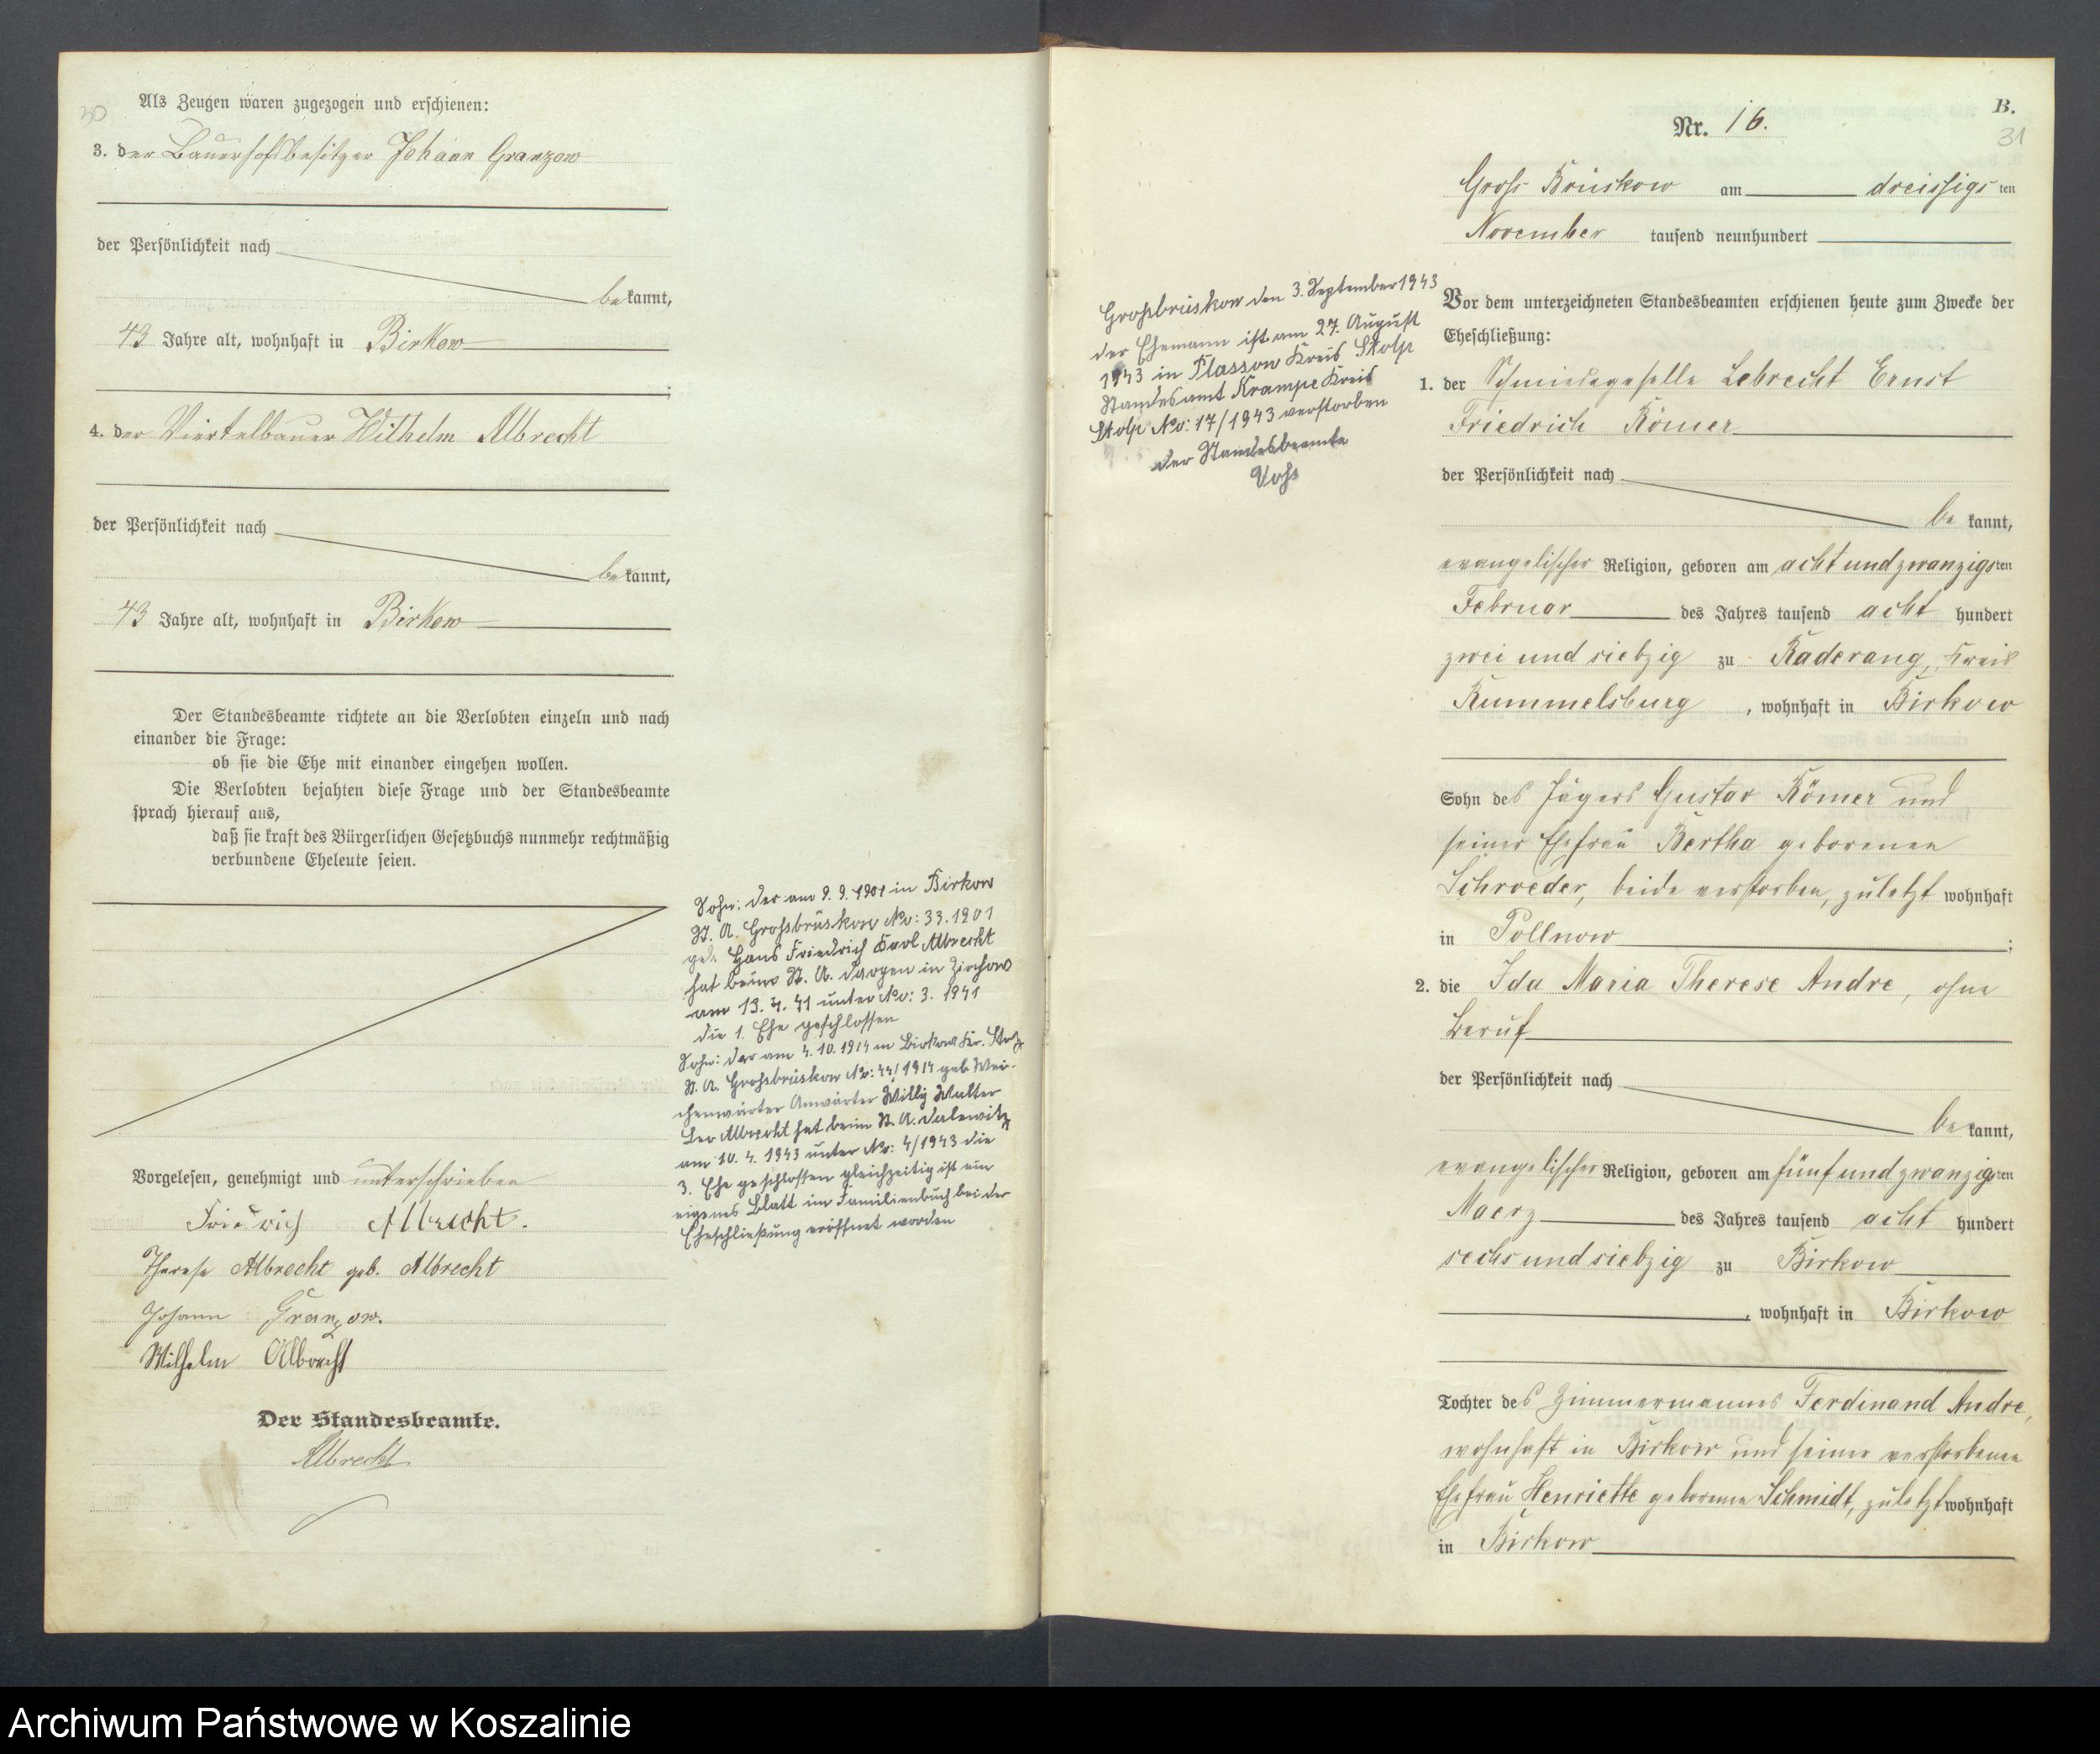 30
Als Zeugen waren zugezogen und erschienen:
3. der Bauerhofsbesitzer Johann Granzow
der Persönlichkeit nach
bekannt,
43 Jahre alt, wohnhaft in Birkow
;
4. der Viertelbauer Wilhelm Albrecht
der Persönlichkeit nach
bekannt,
43 Jahre alt, wohnhaft in Birkow
Der Standesbeamte richtete an die Verlobten einzeln und nach
einander die Frage:
ob sie die Ehe mit einander eingehen wollen.
Die Verlobten bejahten diese Frage und der Standesbeamte
sprach hierauf aus,
daß sie kraft des Bürgerlichen Gesetzbuchs nunmehr rechtmäßig
verbundene Eheleute seien.
Vorgelesen, genehmigt und unterschrieben
Friedrich Albrecht.
Therese Albrecht geb. Albrecht
Johann Granzow.
Wilhelm Albrecht
Der Standesbeamte.
Albrecht
Sohn: der am 9. 9. 1901 in Birkow
St. A. Großbrüskow No: 33.1901
geb. Hans Friedrich Karl Albrecht
hat beim St. A. Dargen in Zirchow
am 13. 4. 41 unter No: 3. 1941
die 1. Ehe geschlossen
Sohn: der am 4. 10. 1914 in Birkow Kr. Stolp
St. A. Großbrüskow No: 44/1914 geb. Wei-
chenwärter Anwärter Willy Walter
Leo Albrecht hat beim St. A.
am 10. 4. 1943 unter No: 4/1943 die
3. Ehe geschlossen gleichzeitig ist ein
eigenes Blatt im Familienbuch bei der
Eheschließung eröffnet worden
B.
31
Nr. 16.
Gross Brüskow am dreissigsten
November tausend neunhundert
Großbrüskow den 3. September 1943
der Ehemann ist am 27. August
1943 in Plassow Kreis Stolp
Standesamt Krampe Kreis
Stolp No: 17/1943 verstorben
der Standesbeamte
Voß
Vor dem unterzeichneten Standesbeamten erschienen heute zum Zwecke der
Eheschließung:
1. der Schmiedegeselle Lebrecht Ernst
Friedrich Römer
der Persönlichkeit nach
bekannt,
evangelischer Religion, geboren am acht und zwanzigsten
Februar des Jahres tausend acht hundert
zwei und siebzig zu Raderang, Kreis
Rummelsburg, wohnhaft in Birkow
Sohn des Jägers Gustav Römer und
seiner Ehefrau Bertha geborenen
Schroeder, beide verstorben, zuletzt wohnhaft
in Pollnow ;
2. die Ida Maria Therese Andre, ohne
Beruf
der Persönlichkeit nach
bekannt,
evangelischer Religion, geboren am fünf und zwanzigsten
Maerz des Jahres tausend acht hundert
sechs und siebzig zu Birkow
, wohnhaft in Birkow
Tochter des Zimmermannes Ferdinand Andre,
wohnhaft in Birkow und seiner verstorbenen
Ehefrau Henriette geborene Schmidt, zuletzt wohnhaft
in Birkow
Archiwum Państwowe w Koszalinie